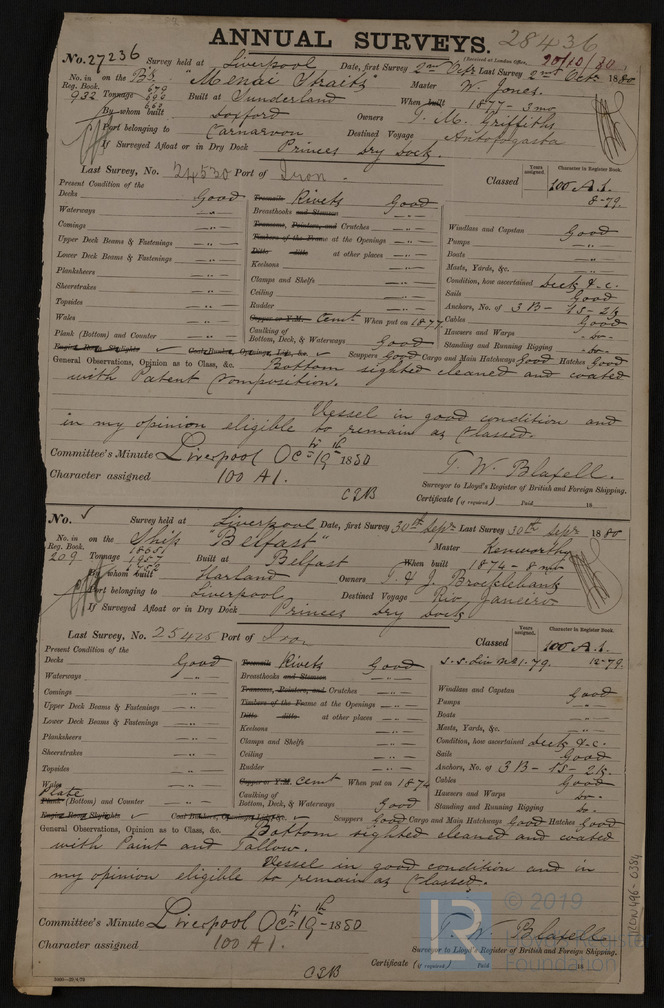 ANNUAL SURVEYS.
28436
No. 27236 Survey held at Liverpool Date, first Survey 2nd Octr Last Survey 2nd Octr 1880
(Received at London Office, 20/10/80
No. in Reg. Book. on the Bk "Menai Straits" Master W. Jones.
932 Tonnage 679 Built at Sunderland When built 1877 - 3 mo
By whom built Doxford Owners Griffiths
Port belonging to Carnarvon Destined Voyage Antofogasta
If Surveyed Afloat or in Dry Dock Princes Dry Dock.
Last Survey, No. 24530 Port of Iron. Classed Years assigned. Character in Register Book.
100 A.1.
8-79.
Present Condition of the
Decks Good
Waterways - " -
Comings - " -
Upper Deck Beams & Fastenings - " -
Lower Deck Beams & Fastenings - " -
Planksheers - " -
Sheerstrakes - " -
Topsides - " -
Wales - " -
Plank (Bottom) and Counter - " -
Engine Room Skylights ✓ Coal Bunker, Openings, Lids, &c. ✓
Treenails Rivets Good
Breasthooks and Stemson - " -
Transoms, Pointers, and Crutches - " -
Timbers of the Frame at the Openings - " -
Ditto ditto at other places - " -
Keelsons - " -
Clamps and Shelfs - " -
Ceiling - " -
Rudder - " -
Copper or Y.M. Cemt When put on 1877
Caulking of Bottom, Deck, & Waterways Good
Windlass and Capstan Good
Pumps - " -
Boats - " -
Masts, Yards, &c. - " -
Condition, how ascertained Deck &c.
Sails Good
Anchors, No. of 3 B - 1 S - 2 K
Cables Good
Hawsers and Warps - do -
Standing and Running Rigging - do -
Scuppers Good Cargo and Main Hatchways Good Hatches Good
General Observations, Opinion as to Class, &c. Bottom sighted cleaned and coated
with Patent Composition.
Vessel in good condition and
in my opinion eligible to remain as Classed.
Committee's Minute Liverpool Oct 19th 1880
Character assigned 100 A1.
T. W. Blafell.
Surveyor to Lloyd's Register of British and Foreign Shipping.
Certificate (if required) Paid 18
No. ✓ Survey held at Liverpool Date, first Survey 30th Sepr Last Survey 30th Sepr 1880
No. in Reg. Book. on the Ship "Belfast" Master Kenworthy
209 Tonnage Built at Belfast When built 1874 - 8 mo
By whom built Harland Owners T & J. Brocklebank
Port belonging to Liverpool Destined Voyage Rio Janeiro
If Surveyed Afloat or in Dry Dock Princes Dry Dock
Last Survey, No. 25425 Port of Iron Classed Years assigned. Character in Register Book.
100 A.1.
S.S. Liv No 1-79. 12-79.
Present Condition of the
Decks Good
Waterways - " -
Comings - " -
Upper Deck Beams & Fastenings - " -
Lower Deck Beams & Fastenings - " -
Planksheers - " -
Sheerstrakes - " -
Topsides - " -
Wales - " -
Plate
Plank (Bottom) and Counter - " -
Engine Room Skylights ✓ Coal Bunkers, Openings, Lids, &c. ✓
Treenails Rivets Good
Breasthooks and Stemson - " -
Transoms, Pointers, and Crutches - " -
Timbers of the Frame at the Openings - " -
Ditto ditto at other places - " -
Keelsons - " -
Clamps and Shelfs - " -
Ceiling - " -
Rudder - " -
Copper or Y.M. Cemt When put on 1874
Caulking of Bottom, Deck, & Waterways Good
Windlass and Capstan Good
Pumps - " -
Boats - " -
Masts, Yards, &c. - " -
Condition, how ascertained Deck &c.
Sails Good
Anchors, No. of 3 B - 1 S - 2 K.
Cables Good
Hawsers and Warps - do -
Standing and Running Rigging - do -
Scuppers Good Cargo and Main Hatchways Good Hatches Good
General Observations, Opinion as to Class, &c. Bottom sighted cleaned and coated
with Paint and Tallow.
Vessel in good condition and in
my opinion eligible to remain as Classed.
Committee's Minute Liverpool Oct 19th 1880
Character assigned 100 A1.
T. W. Blafell
Surveyor to Lloyd's Register of British and Foreign Shipping.
Certificate (if required) Paid 18
© 2019
LR
Lloyd's Register
Foundation